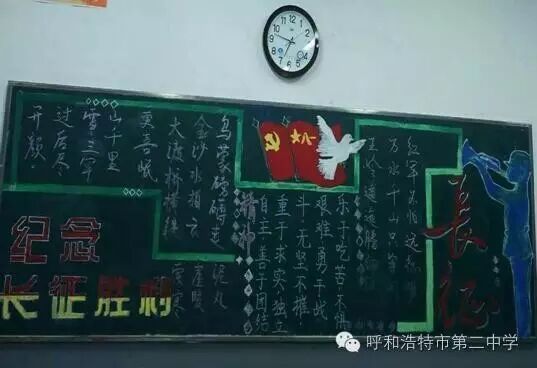 长征
红军不怕远征难
万水千山只等闲
五岭逶迤腾细浪
乌蒙磅礴走泥丸
金沙水拍云崖暖
大渡桥横铁索寒
更喜岷
山千里
雪三军
过后尽
开颜
八一
精神
乐于吃苦不惧
艰难勇于战
斗无坚不摧!
重于求实独立
自主善于团结
纪念
长征胜利
呼和浩特市第二中学